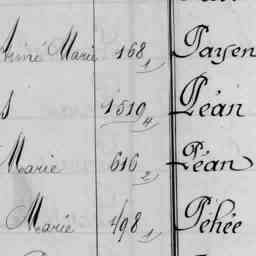 Marie 168 1 Payen
1510 4 Péan
Marie 616 2 Péan
Marie 498 1 Péhée